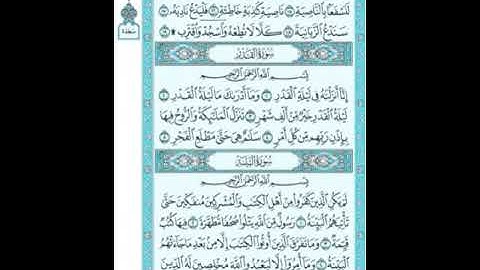 لَنَسْفَعًا بِالنَّاصِيَةِ ١٥ نَاصِيَةٍ كَاذِبَةٍ خَاطِئَةٍ ١٦ فَلْيَدْعُ نَادِيَهُ ١٧
سَنَدْعُ الزَّبَانِيَةَ ١٨ كَلَّا لَا تُطِعْهُ وَاسْجُدْ وَاقْتَرِب ١٩
سجدة
سُورَةُ الْقَدْرِ
بِسْمِ اللَّهِ الرَّحْمَٰنِ الرَّحِيمِ
إِنَّا أَنزَلْنَاهُ فِي لَيْلَةِ الْقَدْرِ ١ وَمَا أَدْرَاكَ مَا لَيْلَةُ الْقَدْرِ ٢
لَيْلَةُ الْقَدْرِ خَيْرٌ مِّنْ أَلْفِ شَهْرٍ ٣ تَنَزَّلُ الْمَلَائِكَةُ وَالرُّوحُ فِيهَا
بِإِذْنِ رَبِّهِم مِّن كُلِّ أَمْرٍ ٤ سَلَامٌ هِيَ حَتَّىٰ مَطْلَعِ الْفَجْرِ ٥
سُورَةُ الْبَيِّنَةِ
بِسْمِ اللَّهِ الرَّحْمَٰنِ الرَّحِيمِ
لَمْ يَكُنِ الَّذِينَ كَفَرُوا مِنْ أَهْلِ الْكِتَابِ وَالْمُشْرِكِينَ مُنفَكِّينَ حَتَّىٰ
تَأْتِيَهُمُ الْبَيِّنَةُ ١ رَسُولٌ مِّنَ اللَّهِ يَتْلُو صُحُفًا مُّطَهَّرَةً ٢ فِيهَا كُتُبٌ
قَيِّمَةٌ ٣ وَمَا تَفَرَّقَ الَّذِينَ أُوتُوا الْكِتَابَ إِلَّا مِن بَعْدِ مَا جَاءَتْهُمُ
الْبَيِّنَةُ ٤ وَمَا أُمِرُوا إِلَّا لِيَعْبُدُوا اللَّهَ مُخْلِصِينَ لَهُ الدِّينَ